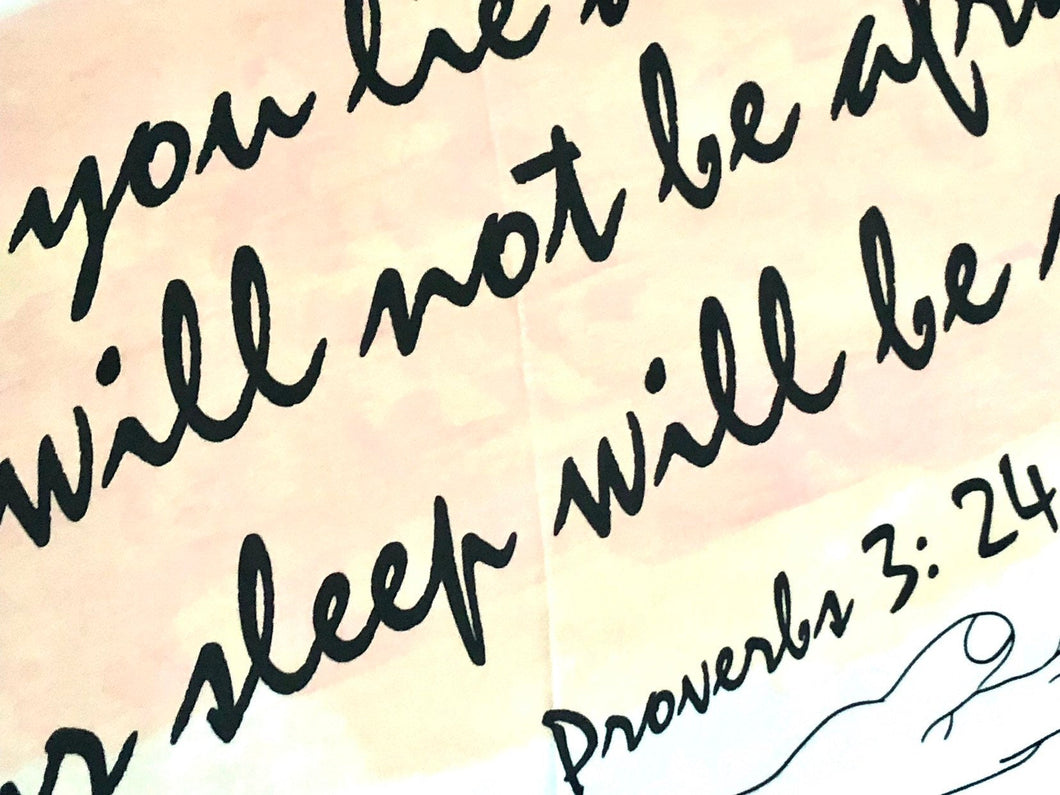 you lie
will not be
sleep will be
Proverbs 3: 24